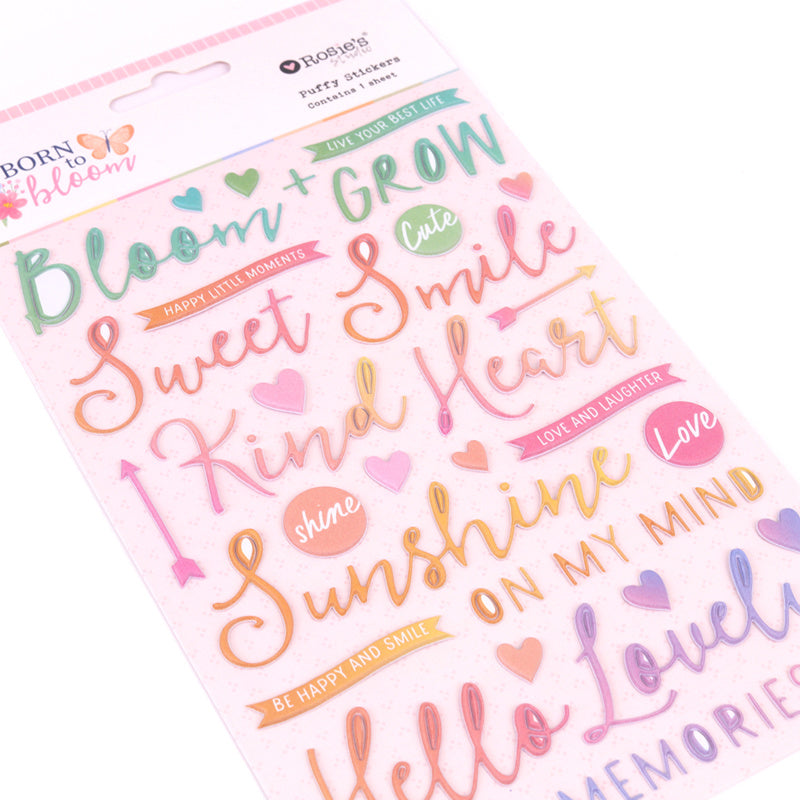 Rosie's
studio
Puffy Stickers
Contains 1 sheet
BORN
to
bloom
LIVE YOUR BEST LIFE
Bloom + GROW
Cute
HAPPY LITTLE MOMENTS
Sweet Smile
Kind Heart
LOVE AND LAUGHTER
Love
shine
Sunshine
ON MY MIND
BE HAPPY AND SMILE
Hello Lovely
MEMORIES